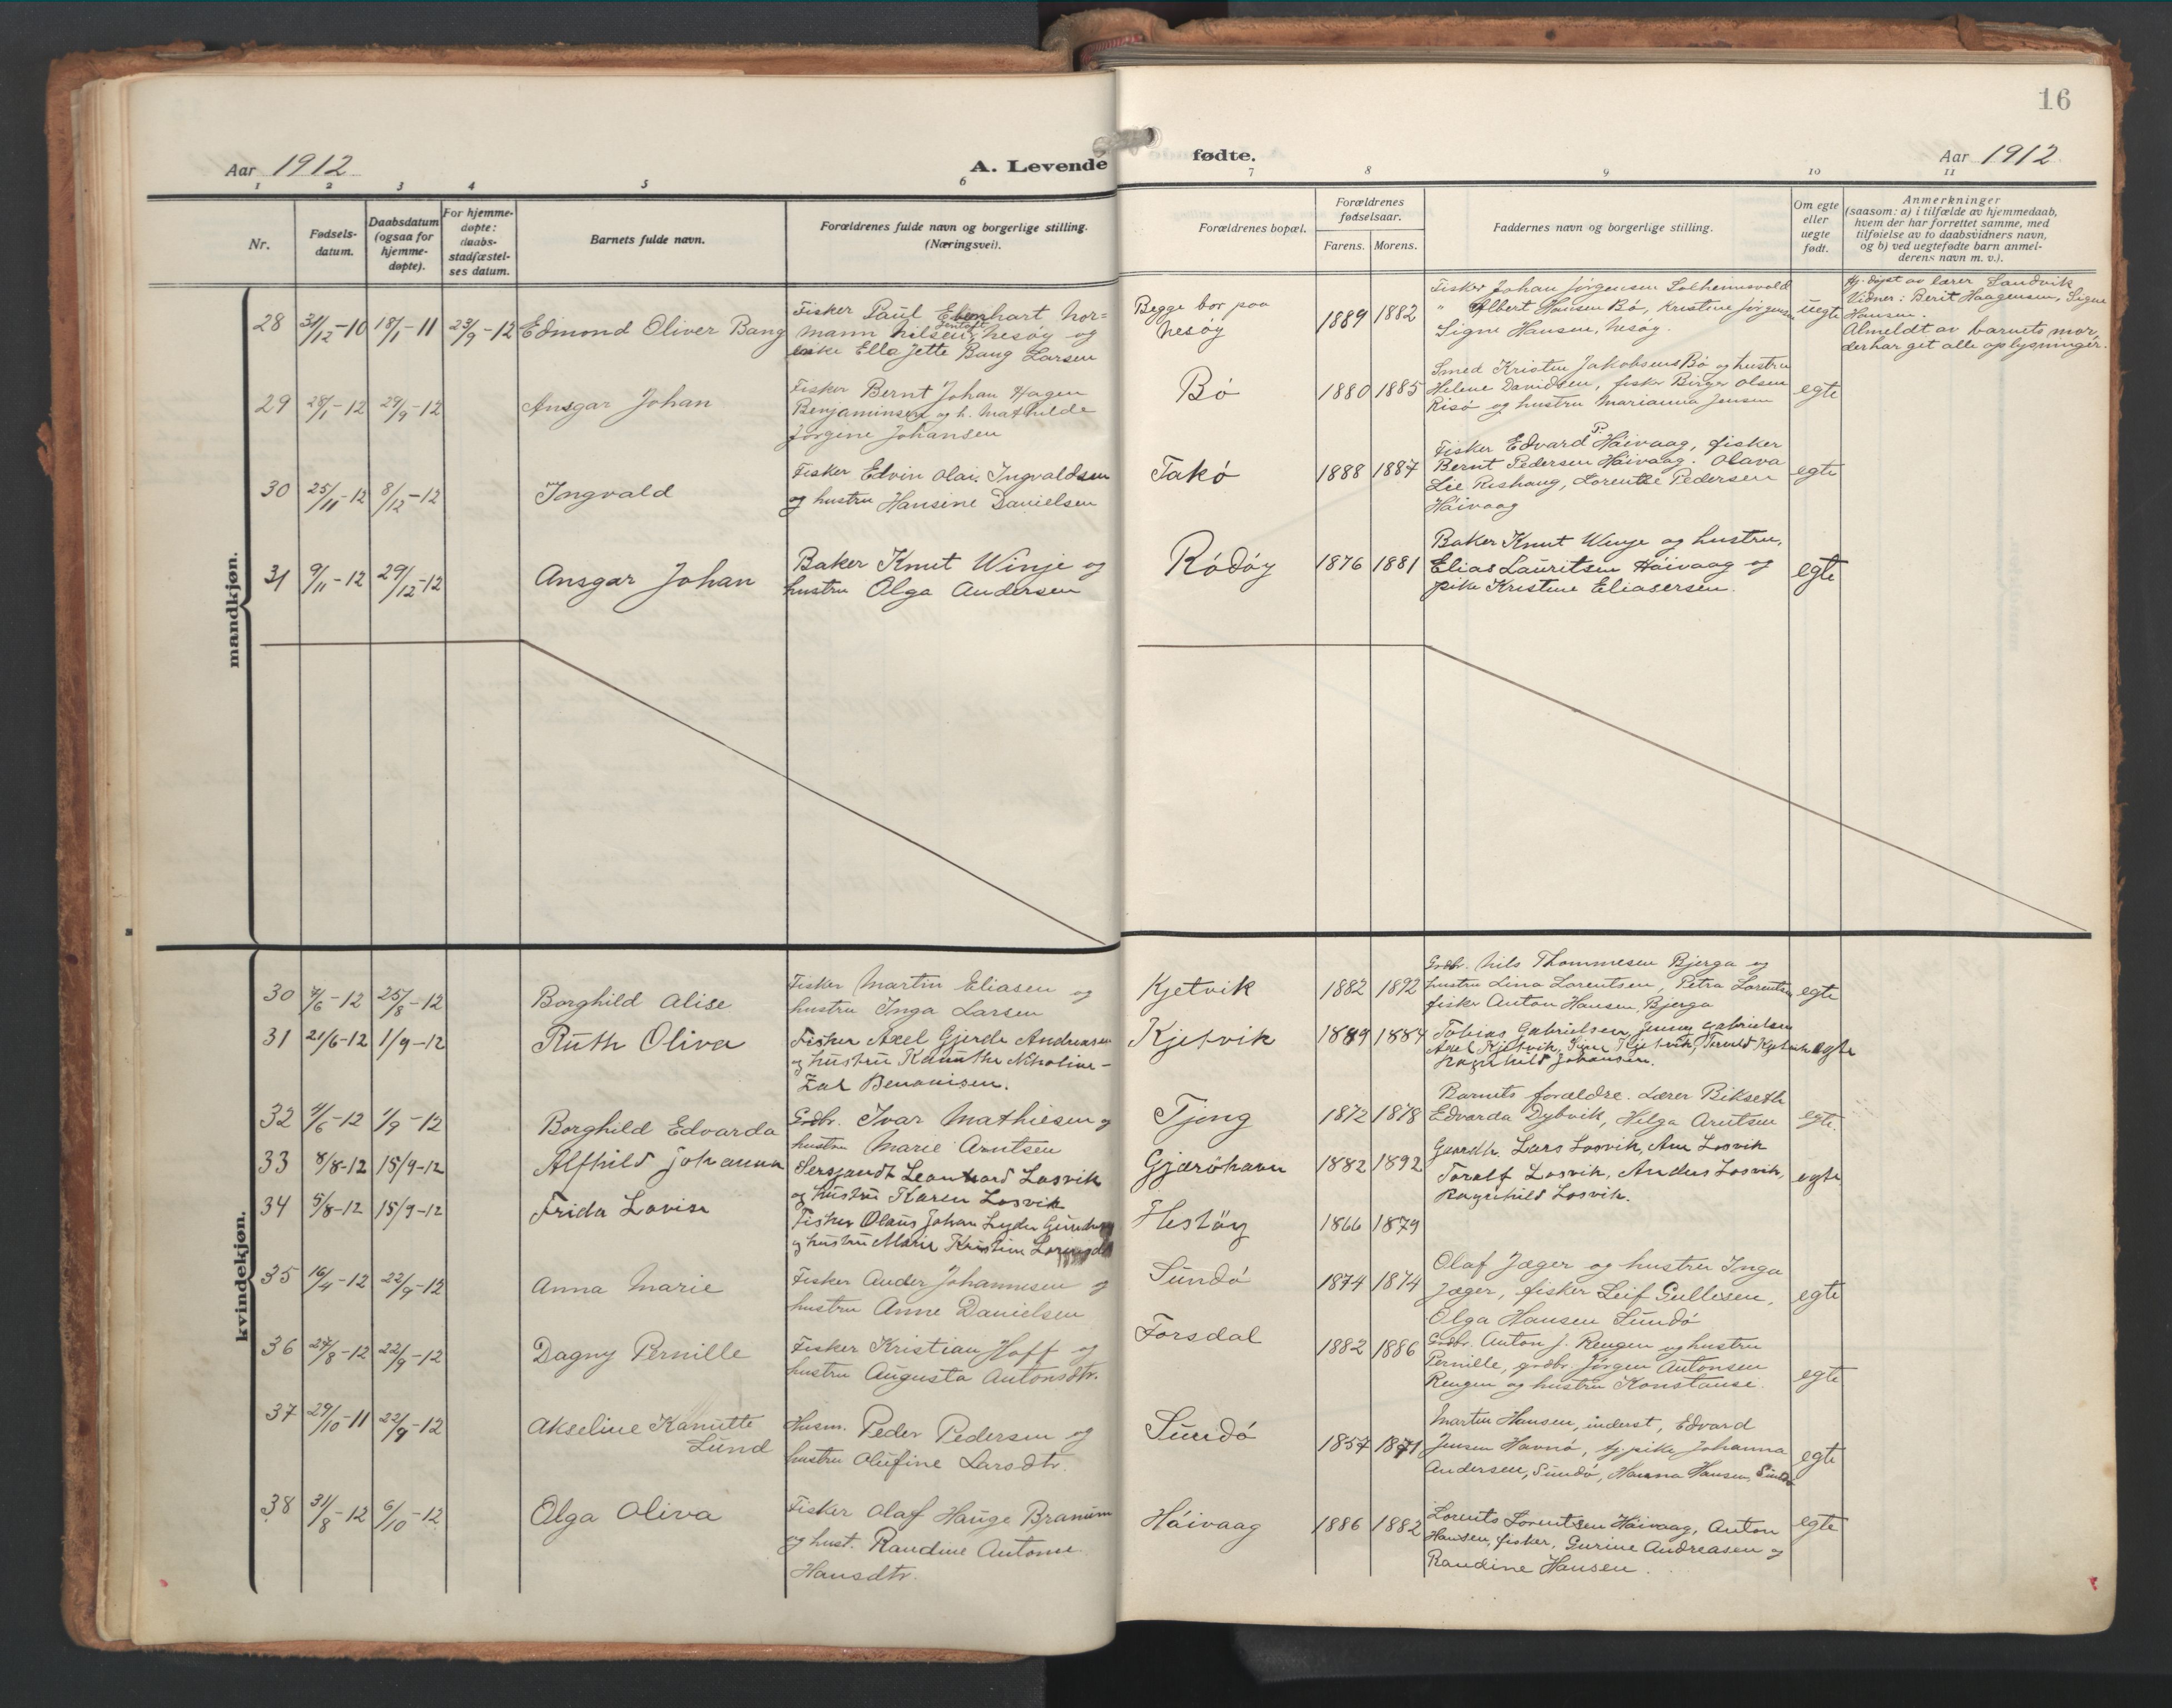 16
Aar 1912
A. Levende
fødte.
Aar 1912
1 2 3 4 5 6
7 8 9 10 11
Nr.
Fødsels-
datum.
Daabsdatum
(ogsaa for
hjemme-
døpte).
For hjemme-
døpte:
daabs-
stadfæstel-
ses datum.
Barnets fulde navn.
Forældrenes fulde navn og borgerlige stilling.
(Næringsvei).
Forældrenes bopæl.
Forældrenes
fødselsaar.
Farens. Morens.
Faddernes navn og borgerlige stilling.
Om egte
eller
uegte
født.
Anmerkninger
(saasom: a) i tilfælde av hjemmedaab,
hvem der har forrettet samme, med
tilføielse av to daabsvidners navn,
og b) ved uegtefødte barn anmel-
derens navn m. v.).
mandkjøn.
28 31/12-10 18/1-11 29/9-12 Edmond Oliver Bang
Fisker Paul Ebenhart Nor=
mann Nilsen, Nesøy og
pike Ella Jette Bang Larsen
Begge bor paa
Nesøy
1889 1882
Fisker Johan Jørgensen Solheimsvold
" Albert Hansen Bø, Kristine Jørgensen
Signe Hansen, Nesøy.
uegte
Hj. døpt av lærer Sandvik
Vidner: Berit Haagensen, Signe
Hansen.
Almeldt av barnets mor,
der har git alle oplysninger.
29 28/1-12 29/9-12 Ansgar Johan
Fisker Bernt Johan Hagen
Benjaminsen og h. Mathilde
Jørgine Johansen
Bø
1880 1885
Smed Kristen Jakobsens Bø og hustru
Helene Davidsen, fisker Birger Olsen
Risø og hustru Marianna Jensen
egte
30 25/11-12 8/12-12 Ingvald
Fisker Edvin Olai Ingvaldsen
og hustru Hansine Danielsen
Takø
1888 1887
Fisker Edvard P. Håivaag, fisker
Bernt Pedersen Håivaag. Olava
Lie Rishaug, Lorentze Pedersen
Håivaag
egte
31 9/11-12 29/12-12 Ansgar Johan
Baker Knut Winje og
hustru Olga Andersen
Rødøy
1876 1881
Baker Knut Winje og hustru,
Elias Lauritsen Håivaag og
pike Kristine Eliasersen.
egte
kvindekjøn.
30 7/6-12 25/8-12 Borghild Alise
Fisker Martin Eliasen og
hustru Inga Larsen
Kjetvik
1882 1892
Grdbr. Nils Thommesen Bjerga og
hustru Lina Lorentsen, Petra Lorentsen
fisker Anton Hansen, Bjerga
egte
31 21/6-12 1/9-12 Ruth Oliva
Fisker Axel Gjerde Andreasen
og hustru Kanuthe Nkoline-
Zal Benonisen.
Kjetvik
1889 1884
Tobias Gabrielsen, Jenny Gabrielsen
Axel Kjetvik, Kjetvik,
Ragnhild Johansen.
egte
32 4/6-12 1/9-12 Borghild Edvarda
Grdbr. Ivar Mathiesen og
hustru Marie Arntsen
Tjong
1872 1878
Barnets forældre. Lærer Bikseth
Edvarda Dybvik, Helga Arntsen
egte.
33 8/8-12 15/9-12 Alfhild Johanna
Sersjandt Leonhard Losvik
og hustru Karen Losvik
Gjærøhavn
1882 1892
Gaardbr. Lars Losvik, Ane Losvik
Toralf Losvik, Anders Losvik,
Ragnhild Losvik.
egte.
34 5/8-12 15/9-12 Frida Lovise
Fisker Olaus Johan Lyder
og hustru Marie Kristine
Hestøy
1866 1879
35 16/4-12 22/9-12 Anna Marie
Fisker Ander Johannesen og
hustru Anne Danielsen
Sundø
1874 1874
Olaf Jæger og hustru Inga
Jæger, fisker Leif Gullesen,
Olga Hansen Sundø
egte
36 27/8-12 22/9-12 Dagny Pernille
Fisker Kristian Hoff og
hustru Augusta Antonsdtr.
Forsdal
1882 1886
Grdbr. Anton J. Rengen og hustru
Pernille, grdbr. Jørgen Antonsen
Rengen og hustru Konstanse.
egte
37 29/10-11 22/9-12 Akseline Kanutte
Lund
Husm. Peder Pedersen og
hustru Olufine Larsdtr.
Sundø
1857 1871
Martin Hansen, inderst, Edvard
Jensen Havnø, tj. pike Johanna
Andersen, Sundø, Hanna Hansen, Sundø
egte
38 31/8-12 6/10-12 Olga Oliva
Fisker Olaf Hauge Branum
og hust. Raudine Antone
Hansdtr.
Håivaag
1886 1882
Lorents Lorentsen Håivaag, Anton
Hansen, fisker, Gurine Andreasen og
Raudine Hansen.
egte